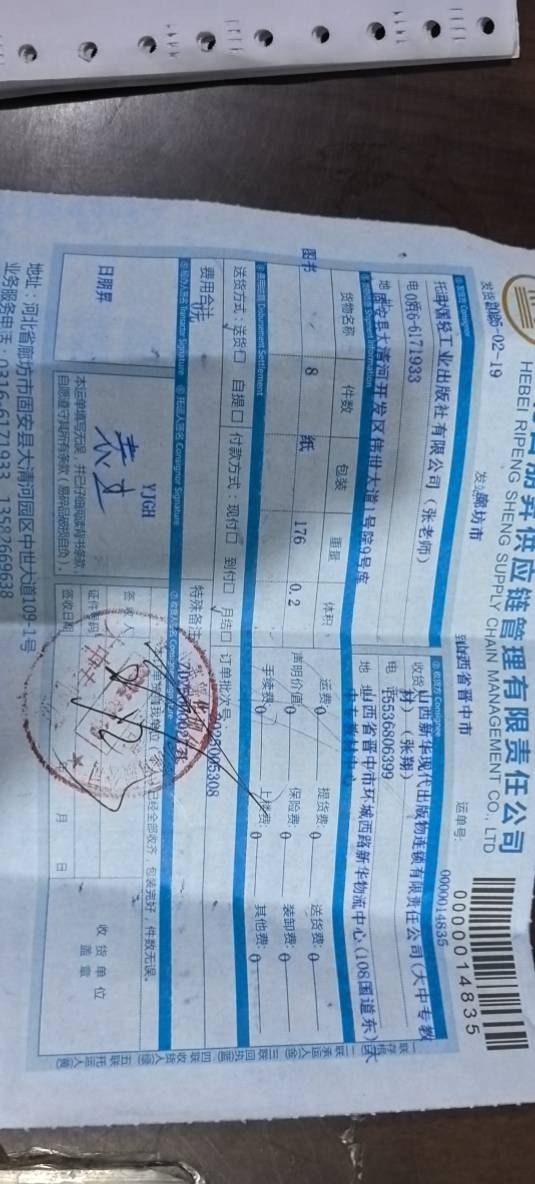 朋昇供应链管理有限责任公司
HEBEI RIPENG SHENG SUPPLY CHAIN MANAGEMENT CO., LTD
0000014835
发货 -02-19
发 廊坊市
到山西省晋中市
运单号:
0000014835
① 发货方 Consignor
② 收货方 Consignee
中国轻工业出版社有限公司(张老师)
收货 山西新华现代出版物连锁有限责任公司(大中专教
材)(张翔)
电 0316-6171933
电 15536806399
地 固安县大清河开发区信世大道1号院9号库
地 山西省晋中市环城西路新华物流中心(108国道东)大
中专教材中心
Shipment Information
货物名称 件数 包装 重量 体积
图书 8 纸 176 0.2
运费: 0 提货费: 0 送货费: 0
声明价值: 0 保险费: 0 装卸费: 0
手续费: 0 上楼费: 0 其他费: 0
④ 费用结算 Disbursement Settlement
送货方式:送货□ 自提□ 付款方式:现付□ 到付□ 月结□ 订单批次号:
费用合计:
特殊备注:
⑤ 经办人签名 Transactor Signature
⑥ 托运人签名 Consignor Signature
⑦ 收货人签名 Consignee Signature
日朋昇
YJGH
已经全部收齐,包装完好,件数无误。
本运单填写无误,并已仔细阅读背书条款,
自愿遵守其所有条款(易碎品破损自负)。
签收人
证件号码
签收日期
月 日
收货单位
盖章
一联存根 二联承运人 三联回执 四联收货人 五联托运人
地址:河北省廊坊市固安县大清河园区中世大道109-1号
业务服务电话:0316-6171933 13582669638